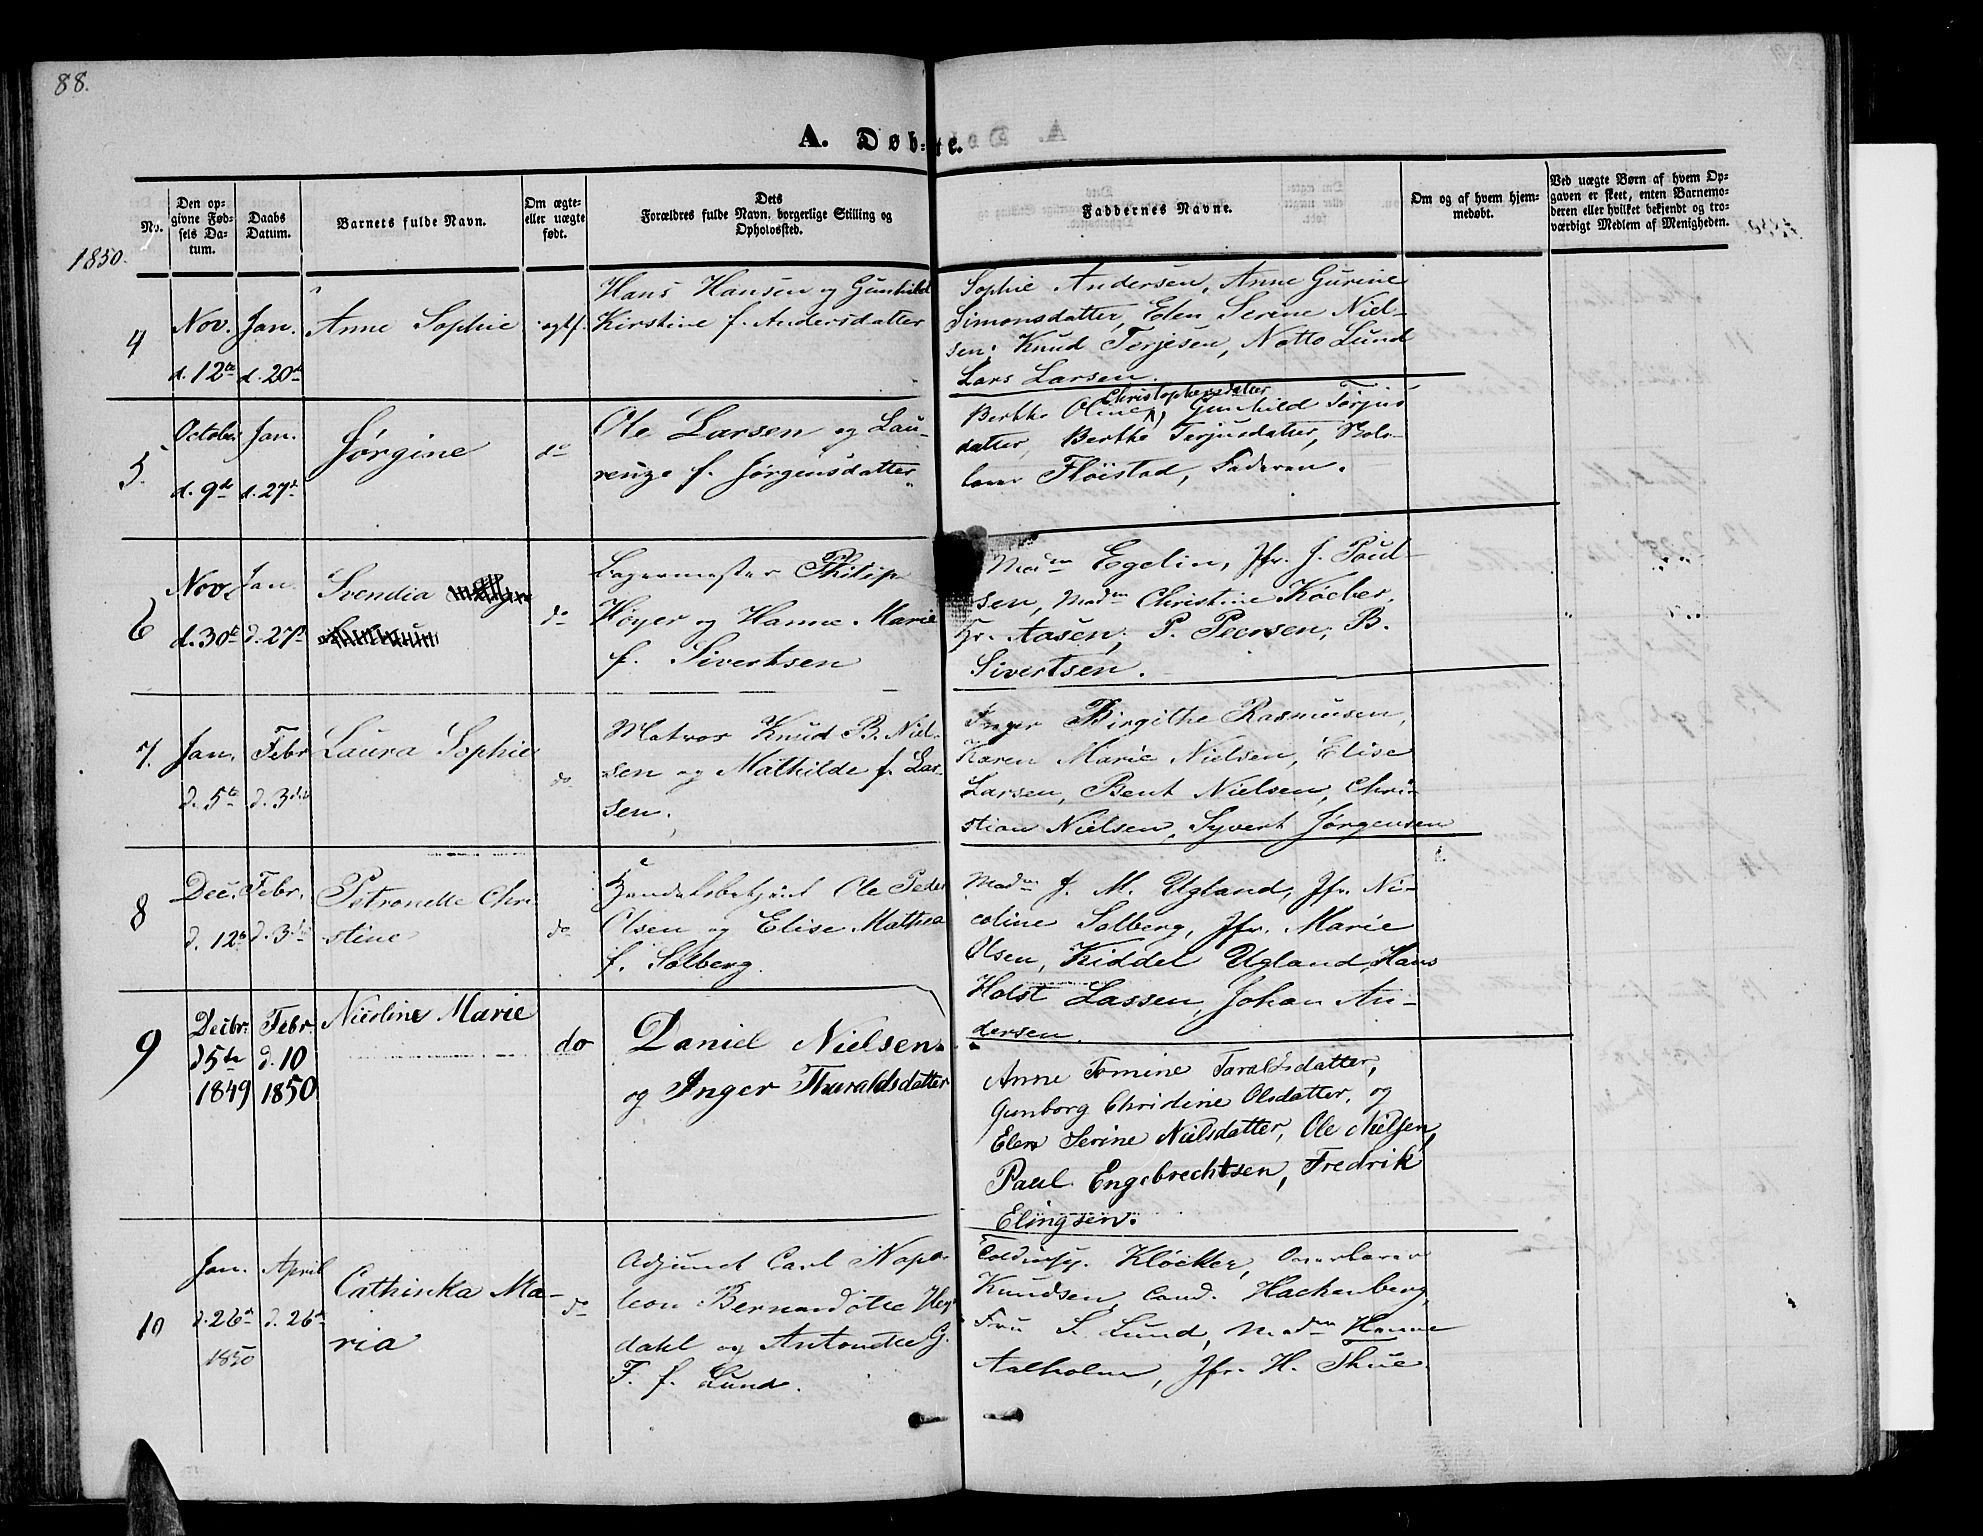 88.
A. Døbte.
No.
Den opgivne Fødsels Datum.
Daabs Datum.
Barnets fulde Navn.
Om ægte- eller uægte født.
Dets Forældres fulde Navn, borgerlige Stilling og Opholdssted.
Faddernes Navne.
Om og af hvem hjemmedøbt.
Ved uægte Børn af hvem Opgaven er skeet, enten Barnemoderen eller hvilket bekjendt og troværdigt Medlem af Menigheden.
1850.
4
Nov. d. 12te
Jan. d. 20de
Anne Sophie
ægtf.
Hans Hansen og Gunhild
Kirstine f. Andersdatter
Sophie Andersen, Anne Gurine
Simonsdatter, Elen Serine Niel-
sen, Knud Terjesen, Notto Lund
Lars Larsen.
5.
October d. 9de
Jan. d. 27de
Jørgine
do
Ole Larsen og Lau-
renze f. Jørgensdatter
Berthe Oline Christophersdatter, Gunhild Torjus
datter, Berthe Terjusdatter,
Fløistad, Faderen.
6
Nov. d. 30te
Jan. d. 27de
Svendia
do
Lagermester Philip
Høyer og Hanne Marie
f. Sivertsen
Madm Egelin, Jfr. J. Poul-
sen, Madm Christine Kocher,
Hr. Aasen, P. Peersen, B.
Sivertsen.
7.
Jan. d. 5te
Febr d. 3die
Laura Sophie
do
Matros Knud B. Niel-
sen og Mathilde f. Lar-
sen.
Inger Birgithe Rasmusen,
Karen Marie Nielsen, Elise
Larsen, Bent Nielsen, Chri-
stian Nielsen, Syvert Jørgensen
8
Dec. d. 12te
Febr. d. 3die
Petronelle Chri
stine
do
Handelsbetjent Ole Peder
Olsen og Elise Mathea
f. Solberg.
Madm J. M. Ugland, Jfr. Ni-
coline Solberg, Jfr. Marie
Olsen, Kiddel Ugland, Hans
Holst Lassen, Johan An-
dersen.
9
Decbr. d 5te 1849
Febr. d. 10 1850
Nicoline Marie
do
Daniel Nielsen
og Inger Tharaldsdatter
Anne Tomine Taraldsdatter,
Gunborg Christine Olsdatter, og
Elen Serine Nielsdatter, Ole Nielsen,
Paul Engebrechtsen, Fredrik
Elingsen.
10
Jan. d. 26de 1850
April d. 26de
Cathinka Ma-
ria
do
Adjunct Carl Napo-
leon Bernadotte Hey
dahl og Antonette G.
F. f. Lund.
Toldinsp. Kløcker, Overlærer
Knudsen, Cand. Hackenberg,
Fru S. Lund, Madm Hanne
Aalholm, Jfr. H. Thue.